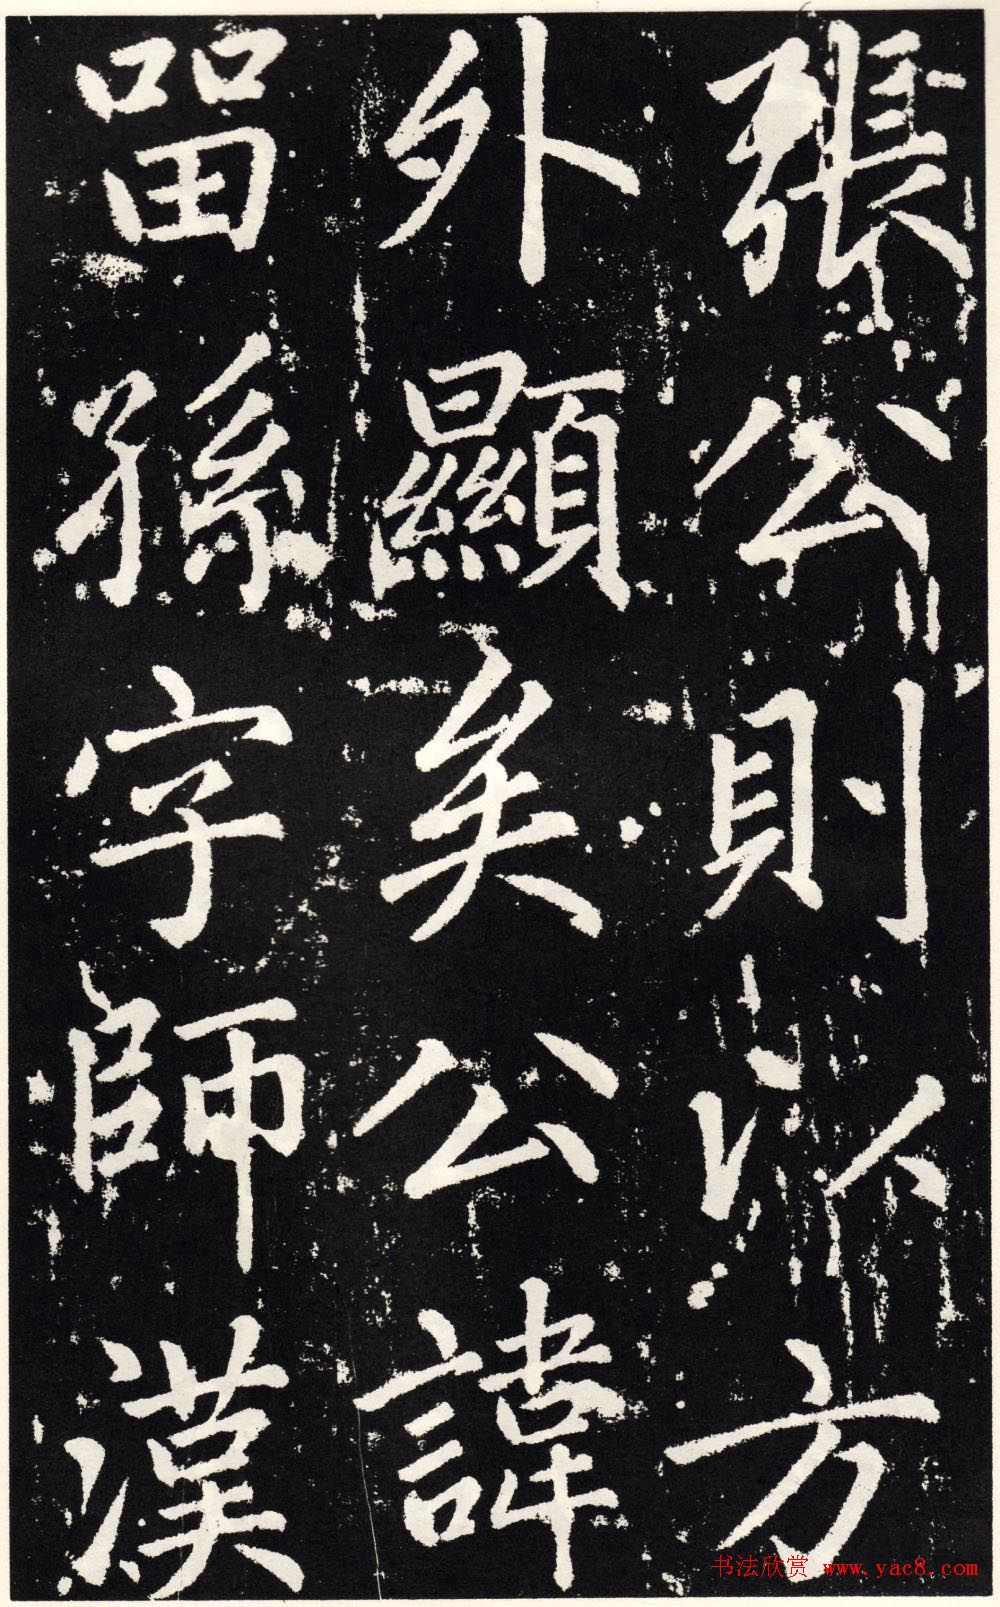 張公則以方
外顯矣公諱
留孫字師漢
书法欣赏 www.yac8.com